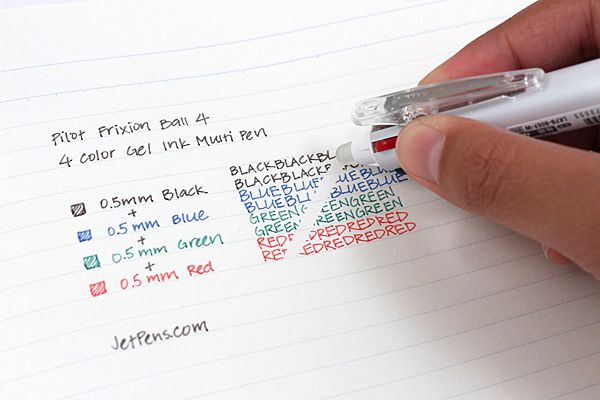 Pilot Frixion Ball 4
4 Color Gel Ink Multi Pen
0.5mm Black
+
0.5mm Blue
+
0.5mm Green
+
0.5mm Red
JetPens.com
BLACKBLACKBL
BLACKBLACKB
BLUEBLUE BLUEBLUE
BLUEBLU BLUEBLUE
GREENG GREEN
GREEN ENGREEN
RED REDREDRED
RE EDREDREDRED